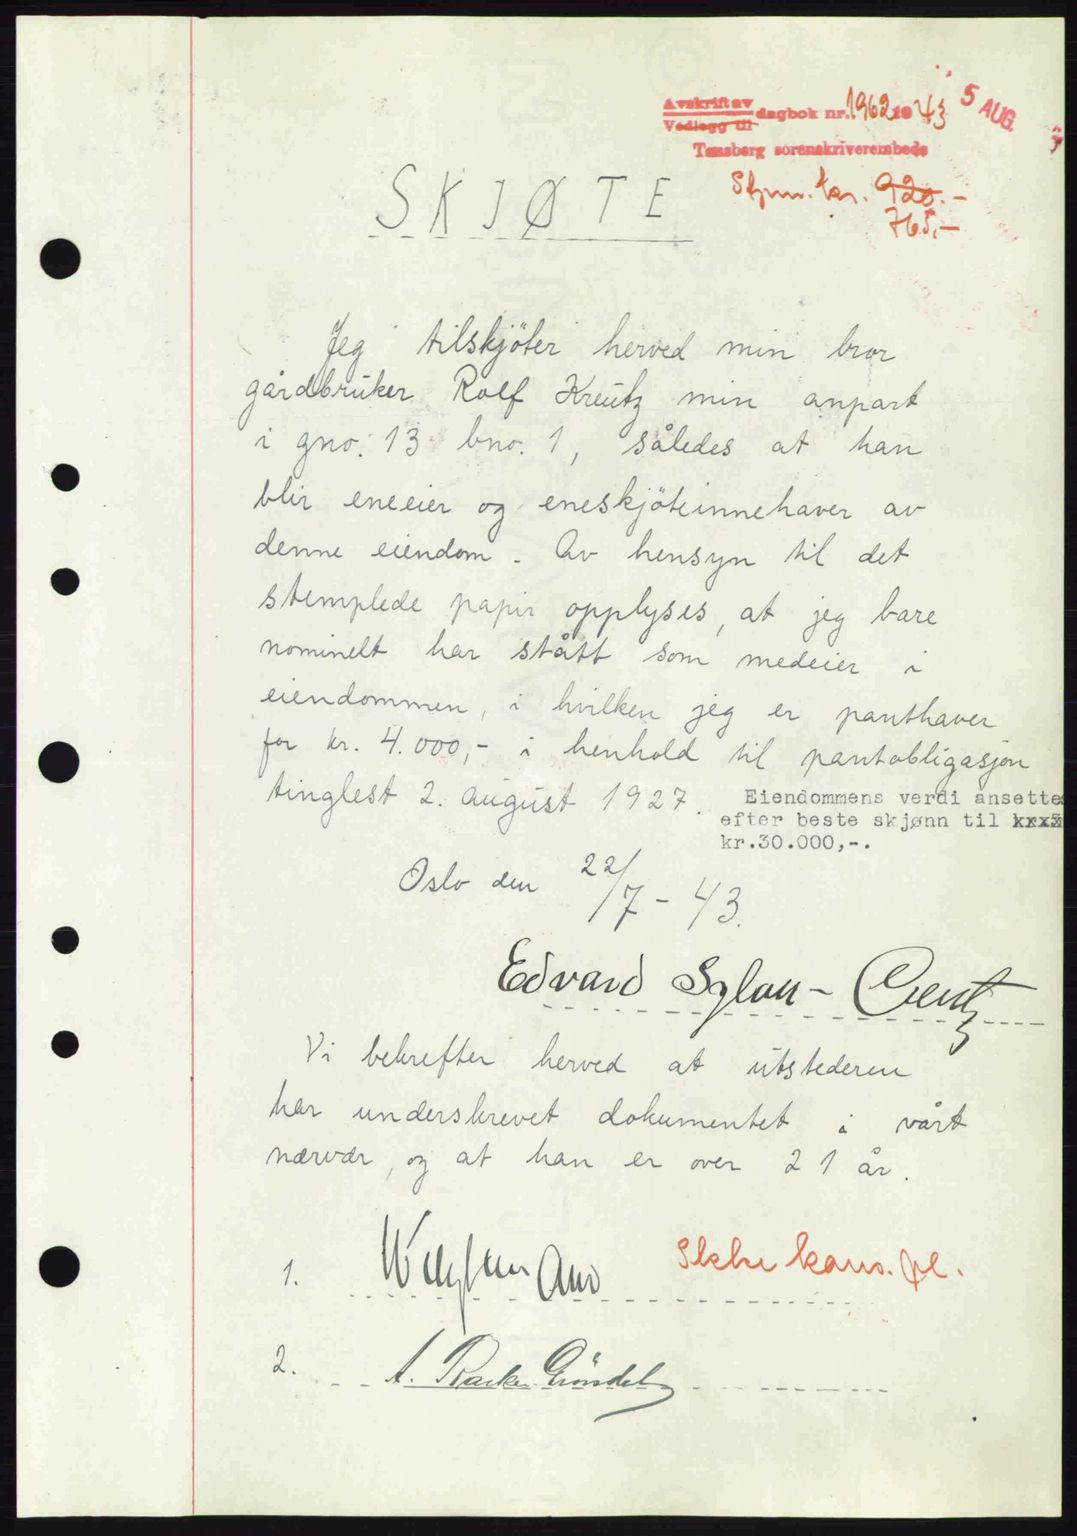 Avskrift av
Vedlegg til
dagbok nr. 1962 19 43
5 AUG.
Tønsberg sorenskriverembede
Stpm. kr. 920.-
765,-
SKJØTE
Jeg tilskjöter herved min bror
gårdbruker Rolf Kreutz min anpart
i gno. 13 bno. 1, således at han
blir eneeier og eneskjöteinnehaver av
denne eiendom. Av hensyn til det
stemplede papir opplyses, at jeg bare
nominelt har stått som medeier i
eiendommen, i hvilken jeg er panthaver
for kr. 4.000,- i henhold til pantobligasjon
tinglest 2. august 1927.
Eiendommens verdi ansettes
efter beste skjønn til
kr.30.000,-.
Oslo den 22/7 - 43.
Edvard Sylou-
Vi bekrefter herved at utstederen
har underskrevet dokumentet i vårt
nærvær, og at han er over 21 år.
1.
Ikke kons. pl.
2. A.